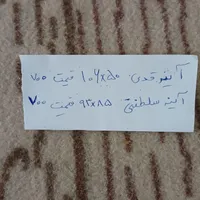 آینه قدی ۱۰۷x۵۰ قیمت ۷۰۰
آینه سلطنتی ۹۳x۸۵ قیمت ۷۰۰